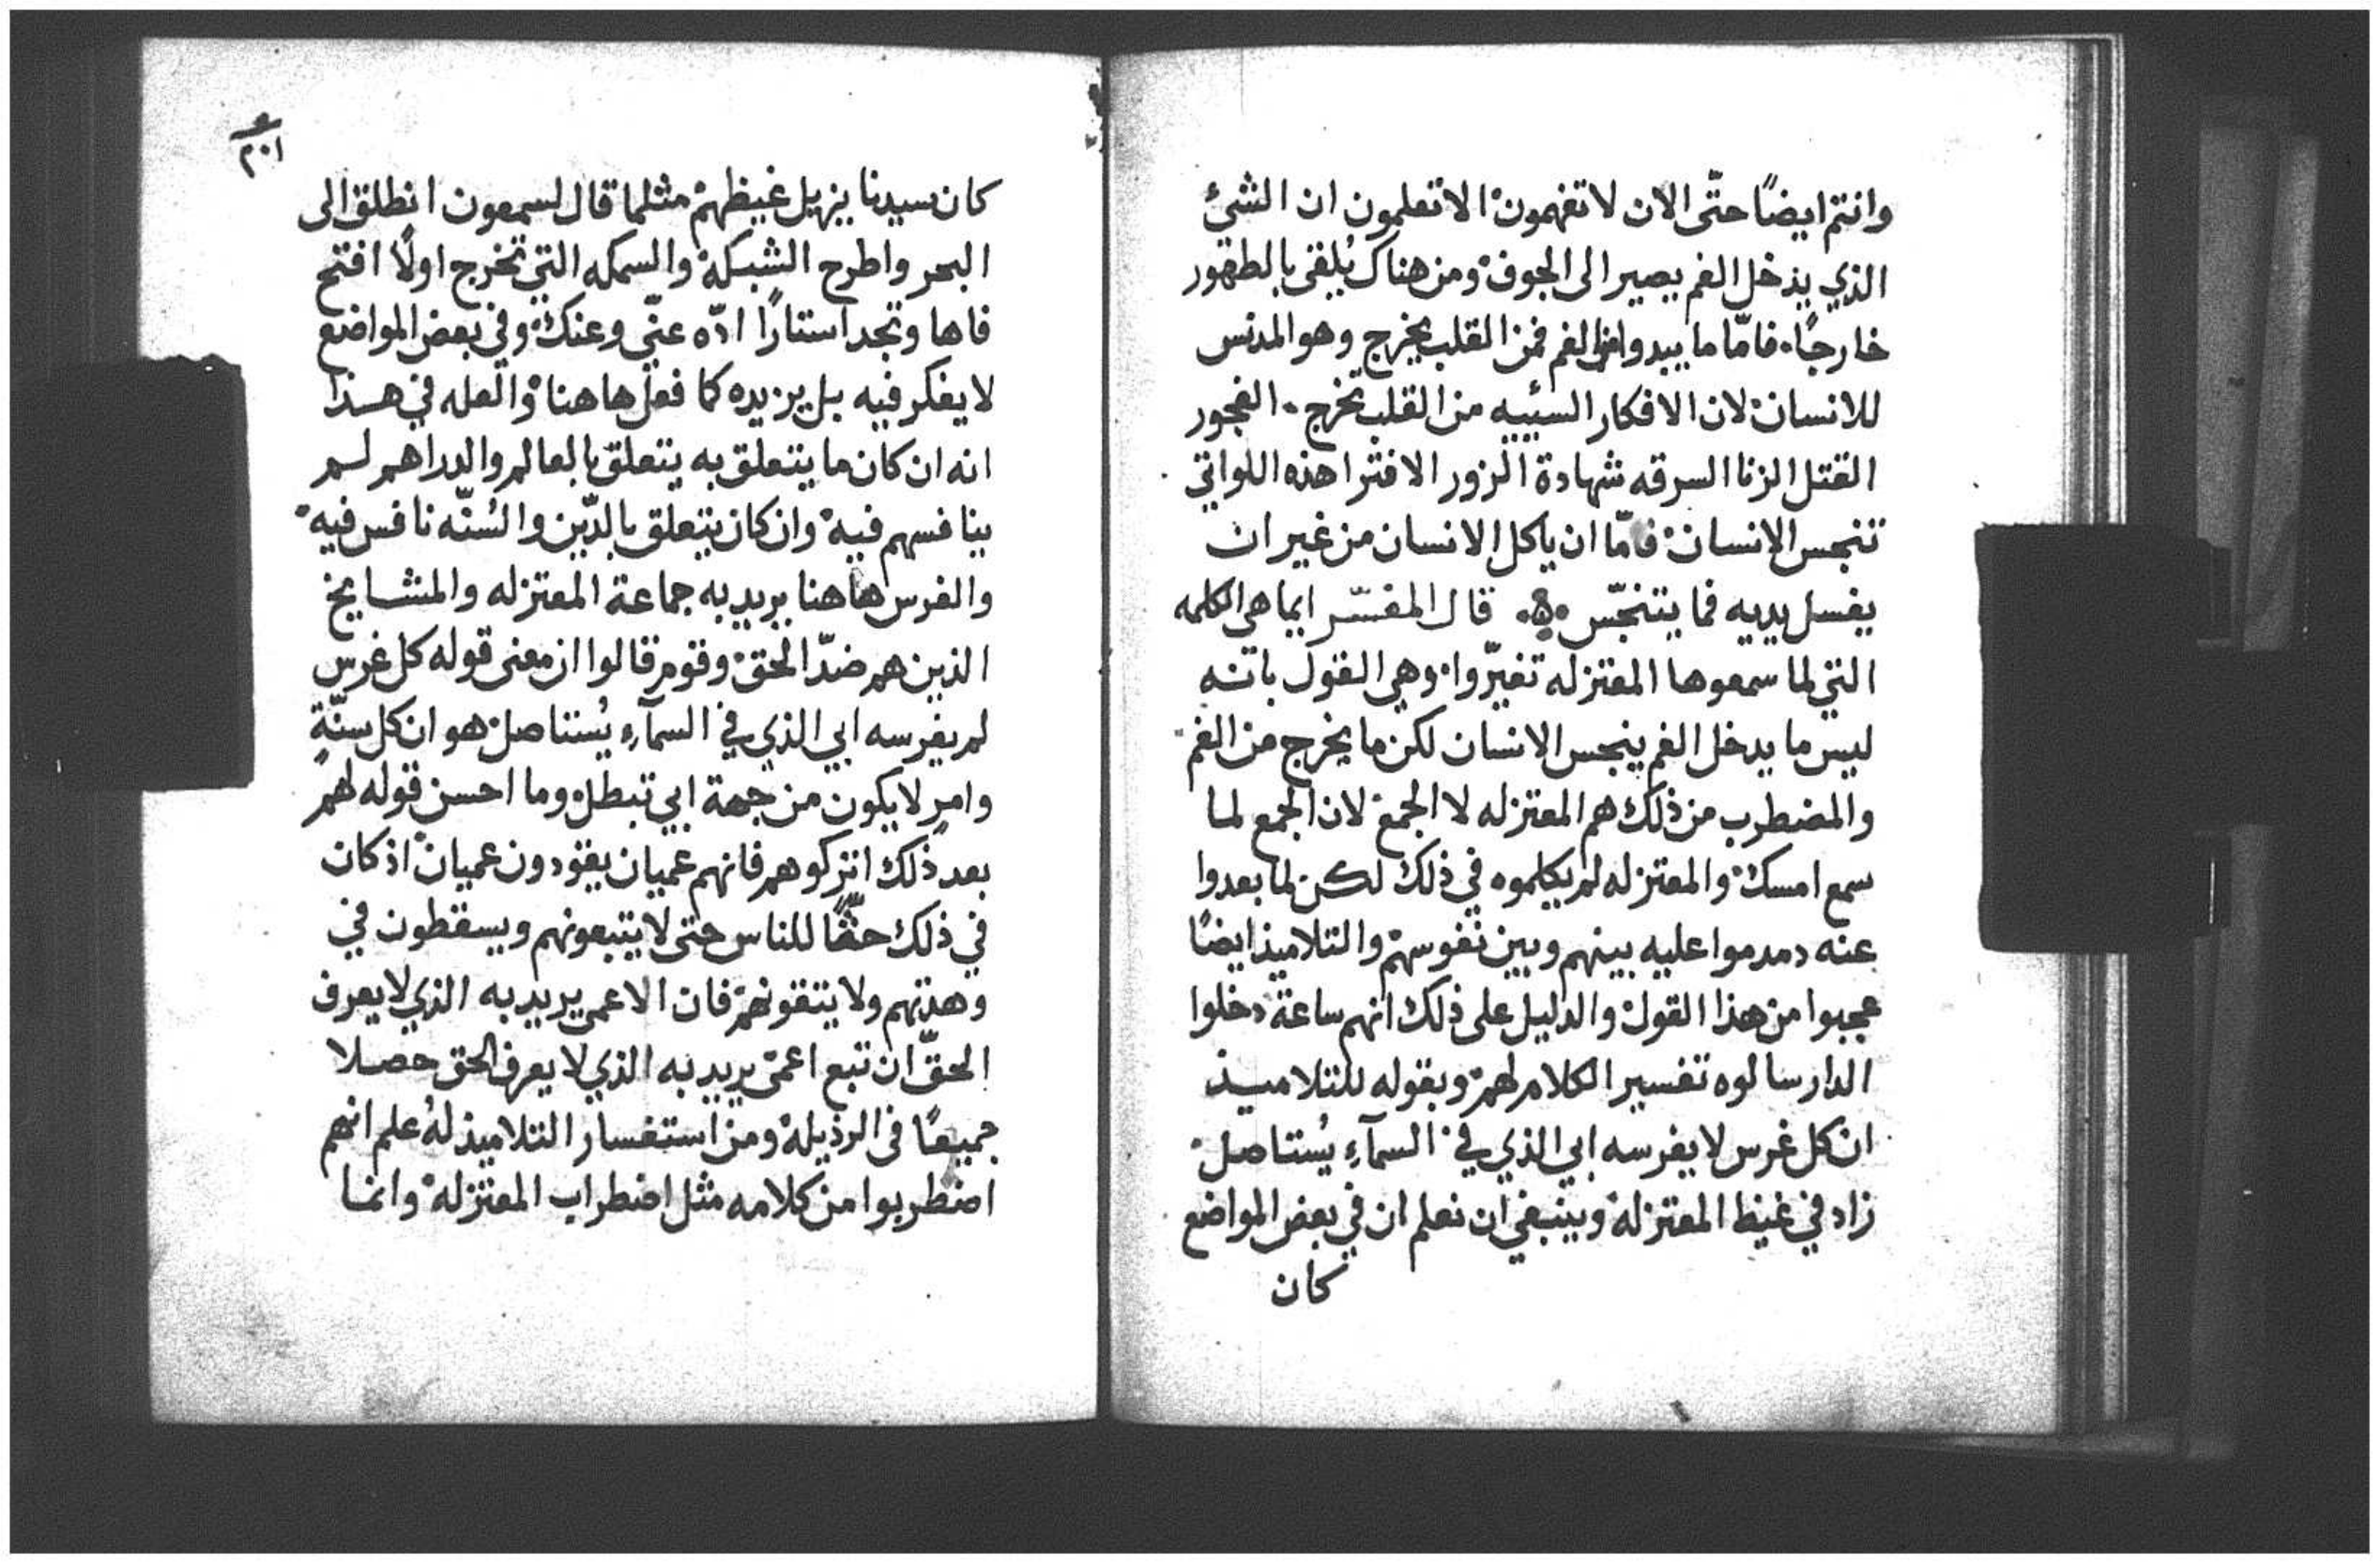 وانتم ايضًا حتّى الان لا تفهمون الا تعلمون ان الشئ
الذي يدخل الفم يصير الى الجوف ومن هناك يُلقى بالطهور
خارجًا فامّا ما يبدوا من الفم فمن القلب يخرج وهو المدنس
للانسان لان الافكار السئييه من القلب تخرج الفجور
القتل الزنا السرقه شهادة الزور الافترا هذه اللواتي
تنجس الانسان فامّا ان ياكل الانسان من غير ان
يغسل يديه فما يتنجّس قال المفسّر ايما هي الكلمه
التي لما سمعوها المعتزله تغيّروا وهي القول بانه
ليس ما يدخل الفم ينجس الانسان لكن ما يخرج من الفم
والمضطرب من ذلك هم المعتزله لا الجمع لان الجمع لما
سمع امسك والمعتزله لم يكلموه في ذلك لكن لما بعدوا
عنه دمدموا عليه بينهم وبين نفوسهم والتلاميذ ايضًا
عجبوا من هذا القول والدليل على ذلك انهم ساعة دخلوا
الدار سالوه تفسير الكلام لهم وبقوله للتلاميذ
ان كل غرس لا يغرسه ابي الذي في السمآءِ يُستاصل
زاد في غيظ المعتزله وينبغي ان نعلم ان في بعض المواضع
كان
٢٠١
كان سيدنا يزيل غيظهم مثلما قال لسمعون انطلق الى
البحر واطرح الشبكة والسمكه التي تخرج اولًا افتح
فاها وتجد استارًا ادّه عنّي وعنك وفي بعض المواضع
لا يفكر فيه بل يزيده كما فعل هاهنا والعله في هذا
انه ان كان ما يتعلق به يتعلق بالعالم والدراهم لم
ينافسهم فيه وان كان يتعلق بالدّين والسُنّه نافس فيه
والغرس هاهنا يريد به جماعة المعتزله والمشايخ
الذين هم ضدّ الحق وقوم قالوا ان معنى قوله كل غرس
لم يغرسه ابي الذي في السمآءِ يُستاصل هو ان كل سنّةٍ
وامرٍ لا يكون من جهة ابي تبطل وما احسن قوله لهم
بعد ذلك اتركوهم فانهم عميان يقودون عميان اذ كان
في ذلك حثًّا للناس حتى لا يتبعونهم ويسقطون في
وهدتهم ولا يتقونهم فان الاعمى يريد به الذي لا يعرف
الحقّ ان تبع اعمى يريد به الذي لا يعرف الحق حصلا
جميعًا في الرذيلة ومن استفسار التلاميذ لهُ علم انهم
اضطربوا من كلامه مثل اضطراب المعتزله وانما